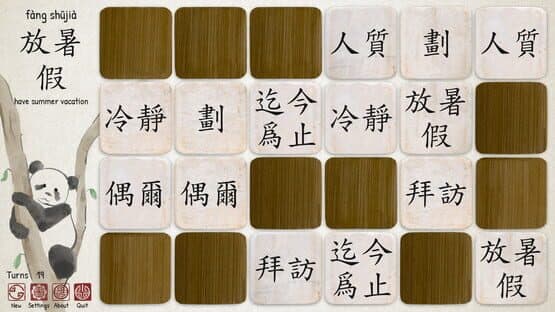 fàng shŭjià
放暑
假
have summer vacation
人質
劃
人質
冷靜
劃
迄今
爲止
冷靜
放暑
假
偶爾
偶爾
拜訪
拜訪
迄今
爲止
放暑
假
Turns 19
New Settings About Quit